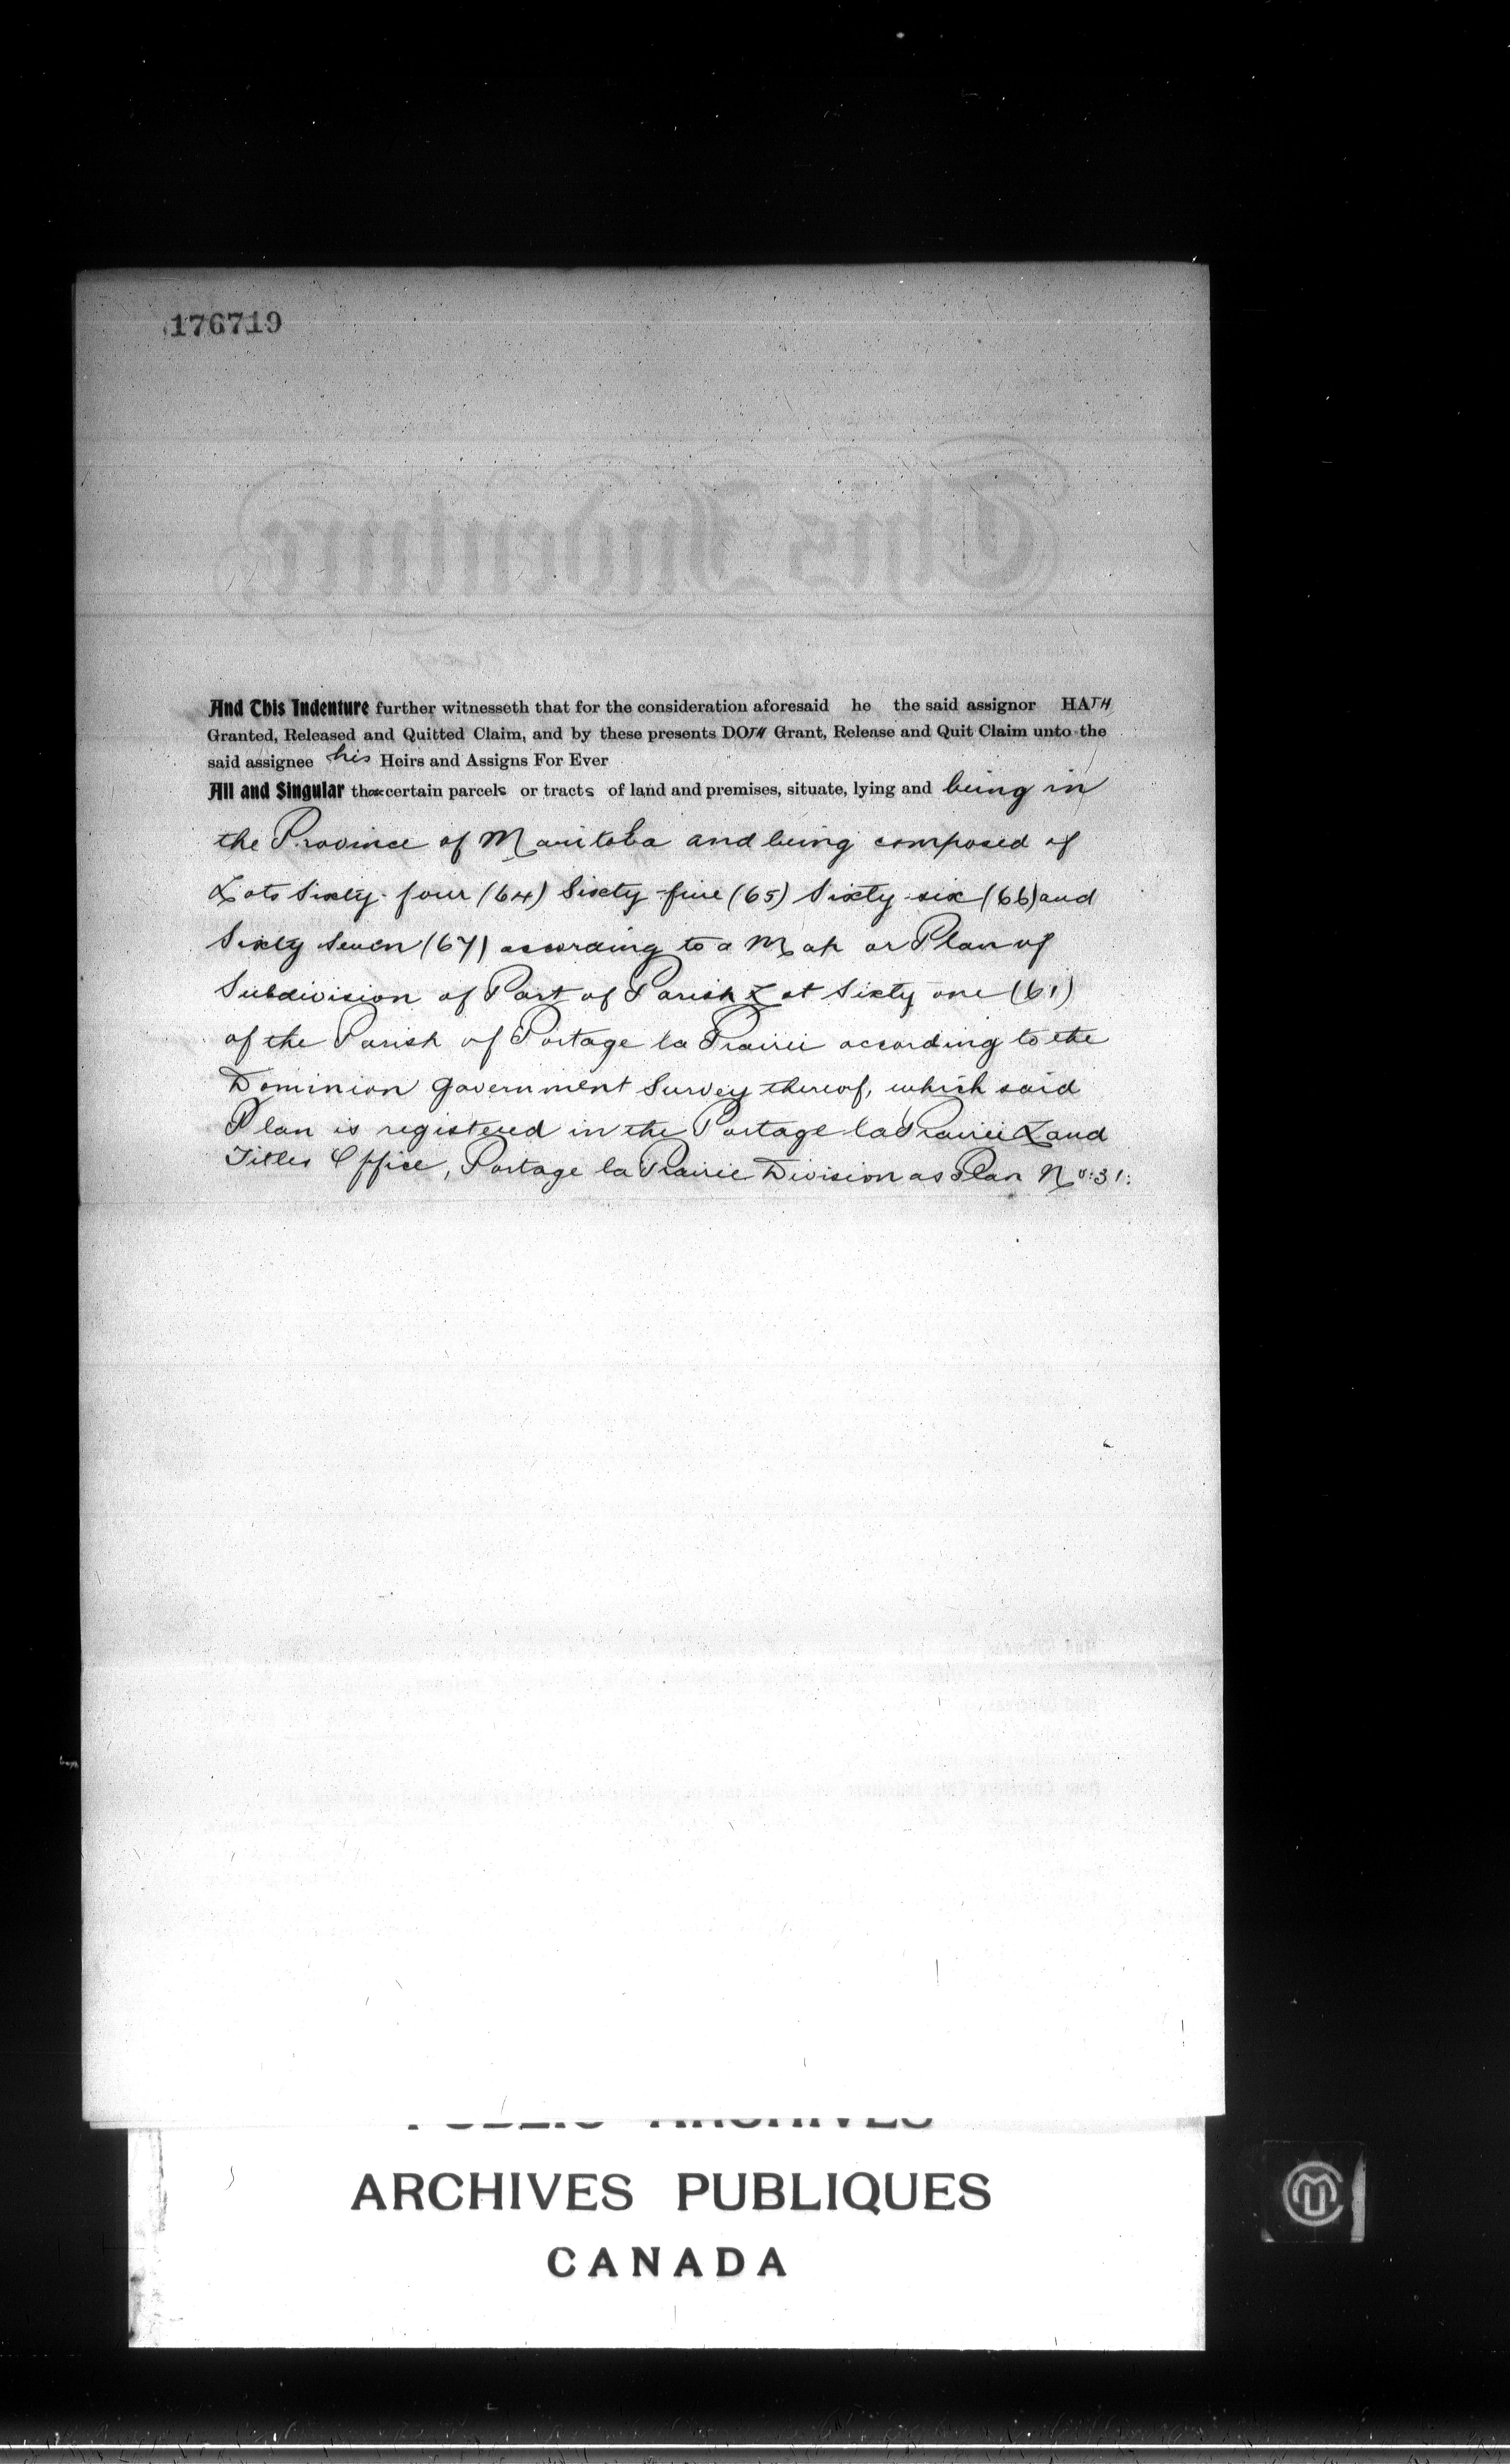 176719
This Indenture
And This Indenture further witnesseth that for the consideration aforesaid he the said assignor HATH
Granted, Released and Quitted Claim, and by these presents DOTH Grant, Release and Quit Claim unto the
said assignee his Heirs and Assigns For Ever
All and Singular those certain parcels or tracts of land and premises, situate, lying and being in
the Province of Manitoba and being composed of
Lots Sixty-four (64) Sixty-five (65) Sixty six (66) and
Sixty Seven (67) according to a Map or Plan of
Subdivision of Part of Parish Lot Sixty one (61)
of the Parish of Portage la Prairie according to the
Dominion Government Survey thereof, which said
Plan is registered in the Portage la Prairie Land
Titles Office, Portage la Prairie Division as Plan No: 31:
PUBLIC ARCHIVES
ARCHIVES PUBLIQUES
CANADA